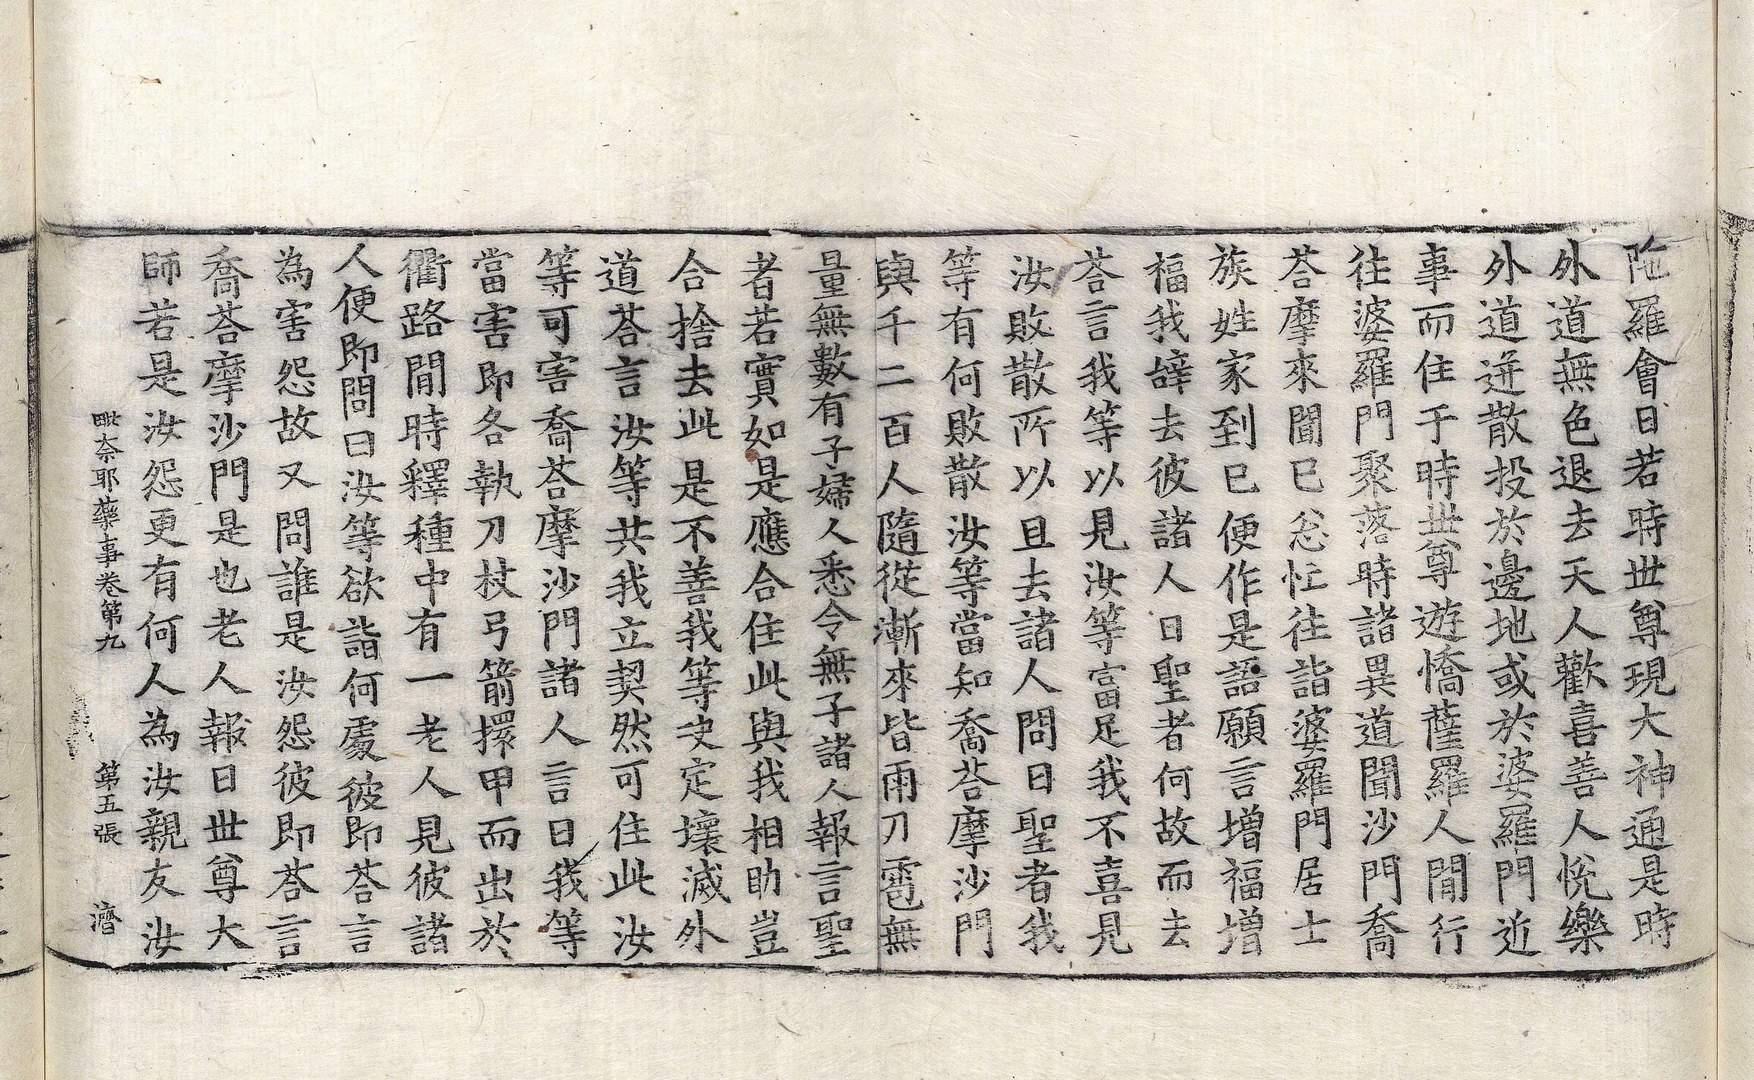 陁羅會日若時世尊現大神通是時
外道無色退去天人歡喜善人恱樂
外道迸散投於邊地或於婆羅門近
事而住于時世尊遊憍薩羅人間行
往婆羅門聚落時諸異道聞沙門喬
荅摩來聞已怱忙往詣婆羅門居士
族姓家到已便作是語願言增福增
福我辝去彼諸人曰聖者何故而去
荅言我等以見汝等富足我不喜見
汝敗散所以且去諸人問曰聖者我
等有何敗散汝等當知喬荅摩沙門
與千二百人隨從漸來皆雨刀雹無
量無數有子婦人悉令無子諸人報言聖
者若實如是應合住此與我相助豈
合捨去此是不善我等定壞滅外
道荅言汝等共我立契然可住此汝
等可害喬荅摩沙門諸人言曰我等
當害即各執刀杖弓箭擐甲而出於
衢路間時釋種中有一老人見彼諸
人便即問曰汝等欲詣何處彼即荅言
為害怨故又問誰是汝怨彼即荅言
喬荅摩沙門是也老人報曰世尊大
師若是汝怨更有何人為汝親友汝
毗奈耶藥事卷第九 第五張 濟